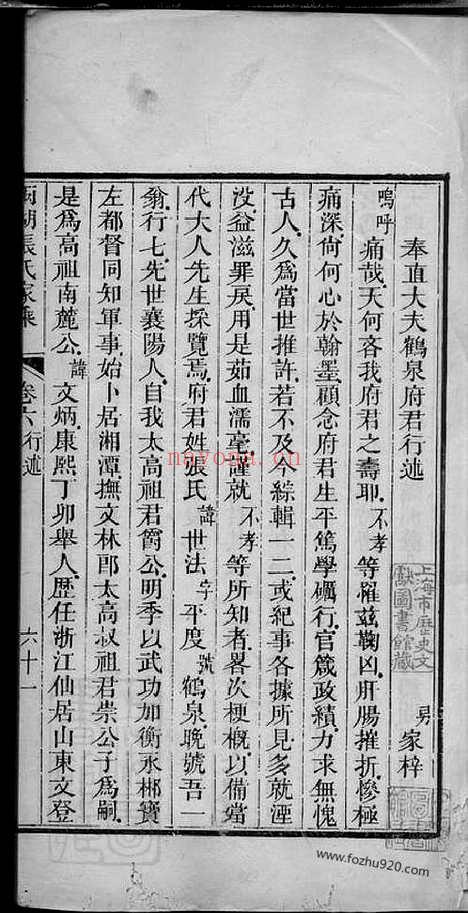 奉直大夫鶴泉府君行述
男 家梓
嗚呼痛哉天何吝我府君之壽耶不孝等罹茲鞠凶肝腸摧折慘極
痛深尚何心於翰墨顧念府君生平篤學礪行官箴政績力求無愧
古人久爲當世推許若不及今綜輯一二或紀事各據所見多就湮
沒益滋罪戾用是茹血濡毫謹就不孝等所知者畧次梗概以備當
代大人先生採覽焉府君姓張氏諱世法字平度號鶴泉晚號吾一
翁行七先世襄陽人自我太高祖君爵公明季以武功加衡永郴寶
左都督同知軍事始卜居湘潭撫文林郎太高叔祖君崇公子爲嗣
是爲高祖南麓公諱文炳康熙丁卯舉人歷任浙江仙居山東文登
張氏家乘
卷六行述
六十一
上海市歷史文
獻圖書館藏
nayona.cn
www.fozhu920.com